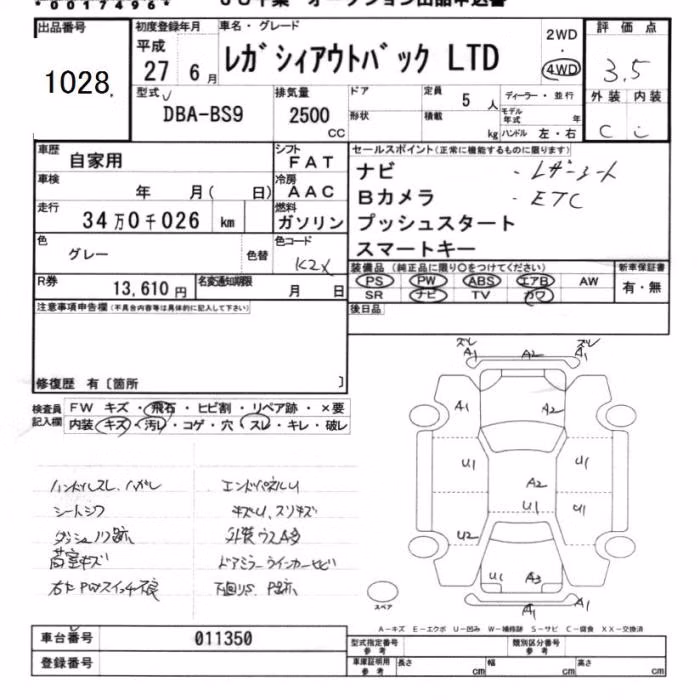 *0017496*
出品番号
1028
初度登録年月
平成
27 6 月
車名・グレード
レガシィアウトバック LTD
2WD
・
4WD
評価点
3.5
外装 内装
C C
型式
DBA-BS9
排気量
2500
CC
ドア
形状
定員
5 人
積載
kg
ディーラー・並行
モデル年式 年
ハンドル 左・右
車歴
自家用
シフト
FAT
車検
年 月( 日)
冷房
AAC
走行
34万0千026 km
燃料
ガソリン
色
グレー
色替
色コード
K2X
R券
13,610 円
名変通知期限
月 日
セールスポイント(正常に機能するものに限ります)
ナビ
・レザーシート
Bカメラ
・ETC
プッシュスタート
スマートキー
装備品(純正品に限り○をつけてください)
PS PW ABS エアB AW
SR ナビ TV カワ
新車保証書
有・無
後日品
注意事項申告欄(不具合内容等は具体的に記入して下さい)
修復歴 有〔箇所 〕
検査員記入欄
FW キズ・飛石・ヒビ割・リペア跡・×要
内装 キズ・汚レ・コゲ・穴・スレ・キレ・破レ
ハンドルスレ、ハガレ
シートシワ
ダッシュノリ跡
荷室キズ
右たPWスイッチ不良
エンドパネルU
キズU、スリキズ
外装ウスA多
ドアミラーウインカーヒビ
下回りS、P跡
ズレ ズレ
A1 A2 A1
A1 A2
U1 A2 U1
U1 U1
U2
U1 A3
A1 A1
スペア
A-キズ E-エクボ U-凹み W-補修跡 S-サビ C-腐食 XX-交換済
車台番号
011350
登録番号
型式指定番号
参考
類別区分番号
参考
車庫証明用
参考
長さ cm
幅 cm
高さ cm